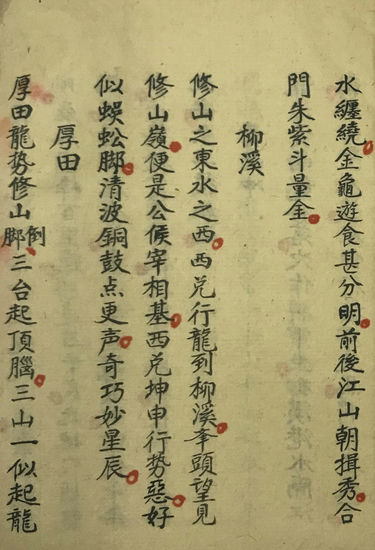 水纏繞金龜遊食甚分明前後江山朝揖秀合
門朱紫斗量金
柳溪
修山之東水之西西兌行龍到柳溪峯頭望見
修山嶺便是公候宰相基西兌坤申行勢惡好
似蜈蚣脚清波銅鼓点更声奇巧妙星辰
厚田
厚田龍势修山倒脚三台起頂腦三山一似起龍